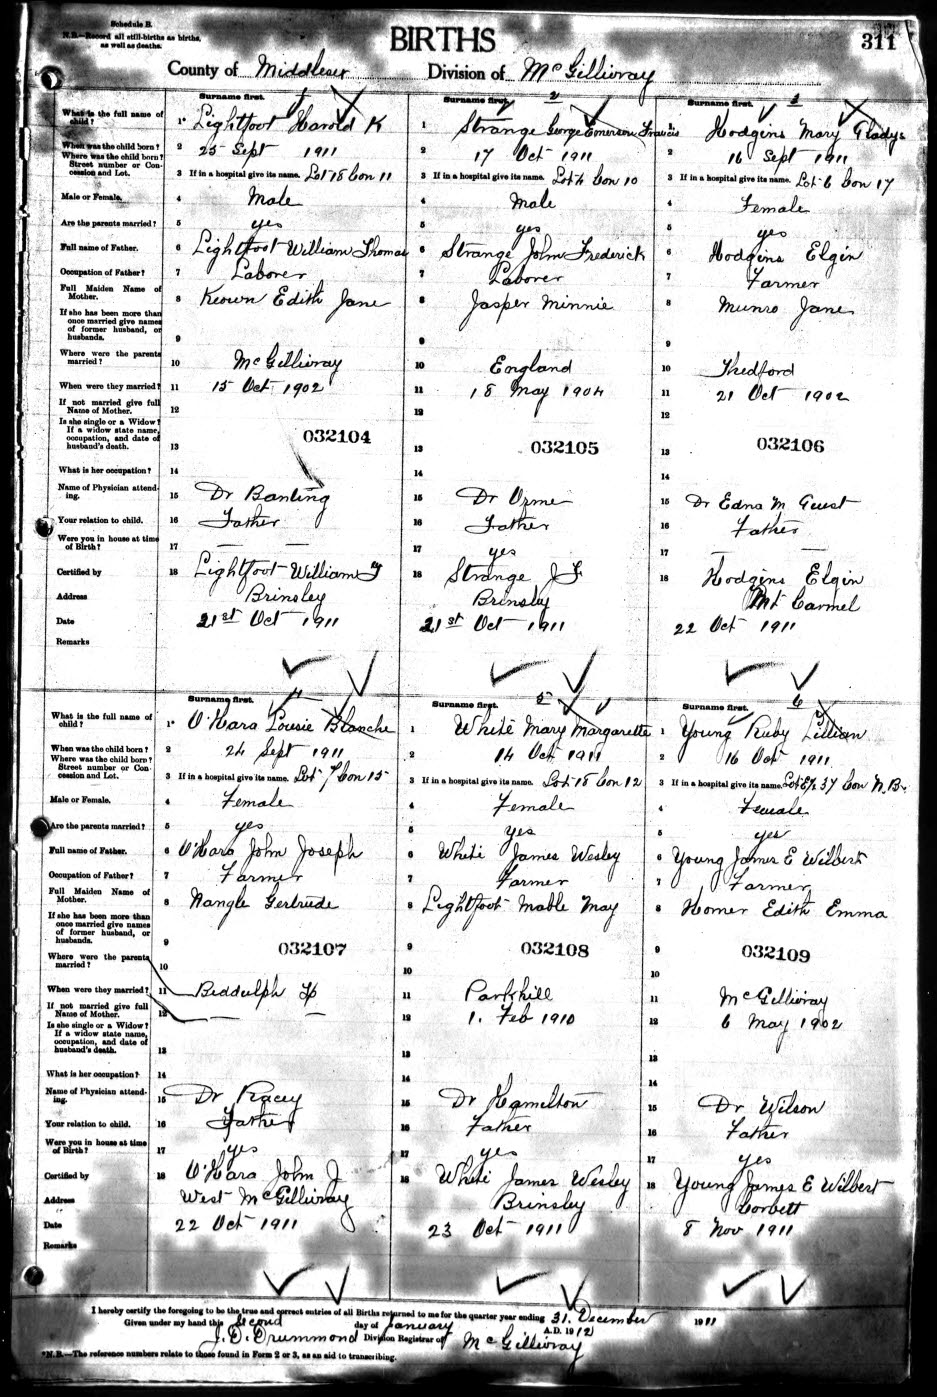 Schedule B.
N.B.—Record all still-births as births,
as well as deaths.
BIRTHS
311
County of Middlesex Division of McGillivray
Surname first. 1 Surname first. 2 Surname first. 3
What is the full name of child? 1* Lightfoot Harold K 1 Strange George Emerson Francis 1 Hodgins Mary Gladys
When was the child born? 2 25 Sept 1911 2 17 Oct 1911 2 16 Sept 1911
Where was the child born? Street number or Concession and Lot. 3 If in a hospital give its name. Lot 18 Con 11 3 If in a hospital give its name. Lot 4 Con 10 3 If in a hospital give its name. Lot 6 Con 17
Male or Female. 4 Male 4 Male 4 Female
Are the parents married? 5 yes 5 yes 5 yes
Full name of Father. 6 Lightfoot William Thomas 6 Strange John Frederick 6 Hodgins Elgin
Occupation of Father? 7 Laborer 7 Laborer 7 Farmer
Full Maiden Name of Mother. 8 Keown Edith Jane 8 Jasper Minnie 8 Munro Jane
If she has been more than once married give names of former husband, or husbands. 9 9 9
Where were the parents married? 10 McGillivray 10 England 10 Thedford
When were they married? 11 15 Oct 1902 11 18 May 1904 11 21 Oct 1902
If not married give full Name of Mother. 12 12 12
Is she single or a Widow? If a widow state name, occupation, and date of husband's death. 13 032104 13 032105 13 032106
What is her occupation? 14 14 14
Name of Physician attending. 15 Dr Banting 15 Dr Orme 15 Dr Edna M Guest
Your relation to child. 16 Father 16 Father 16 Father
Were you in house at time of Birth? 17 — — 17 yes 17 — —
Certified by 18 Lightfoot William T 18 Strange J F 18 Hodgins Elgin
Address Brinsley Brinsley Mt Carmel
Date 21st Oct 1911 21st Oct 1911 22 Oct 1911
Remarks
Surname first. 4 Surname first. 5 Surname first. 6
What is the full name of child? 1* O'Hara Lousie Blanche 1 White Mary Margarette 1 Young Ruby Lillian
When was the child born? 2 24 Sept 1911 2 14 Oct 1911 2 16 Oct 1911
Where was the child born? Street number or Concession and Lot. 3 If in a hospital give its name. Lot 7 Con 15 3 If in a hospital give its name. Lot 18 Con 12 3 If in a hospital give its name. Lot E½ 37 Con N.B.
Male or Female. 4 Female 4 Female 4 Female
Are the parents married? 5 yes 5 yes 5 yes
Full name of Father. 6 O'Hara John Joseph 6 White James Wesley 6 Young James E Wilbert
Occupation of Father? 7 Farmer 7 Farmer 7 Farmer
Full Maiden Name of Mother. 8 Nangle Gertrude 8 Lightfoot Mable May 8 Homer Edith Emma
If she has been more than once married give names of former husband, or husbands. 9 032107 9 032108 9 032109
Where were the parents married? 10 10 10
When were they married? 11 Biddulph Tp 11 Parkhill 11 McGillivray
If not married give full Name of Mother. 12 — — 12 1. Feb 1910 12 6 May 1902
Is she single or a Widow? If a widow state name, occupation, and date of husband's death. 13 13 13
What is her occupation? 14 14 14
Name of Physician attending. 15 Dr Racey 15 Dr Hamilton 15 Dr Wilson
Your relation to child. 16 Father 16 Father 16 Father
Were you in house at time of Birth? 17 yes 17 yes 17 yes
Certified by 18 O'Hara John J 18 White James Wesley 18 Young James E Wilbert
Address West McGillivray Brinsley Corbett
Date 22 Oct 1911 23 Oct 1911 8 Nov 1911
Remarks
I hereby certify the foregoing to be the true and correct entries of all Births returned to me for the quarter year ending 31. December 1911
Given under my hand this Second day of January A.D. 1912
J. D. Drummond Division Registrar of McGillivray
*N.B.—The reference numbers relate to those found in Form 2 or 3, as an aid to transcribing.